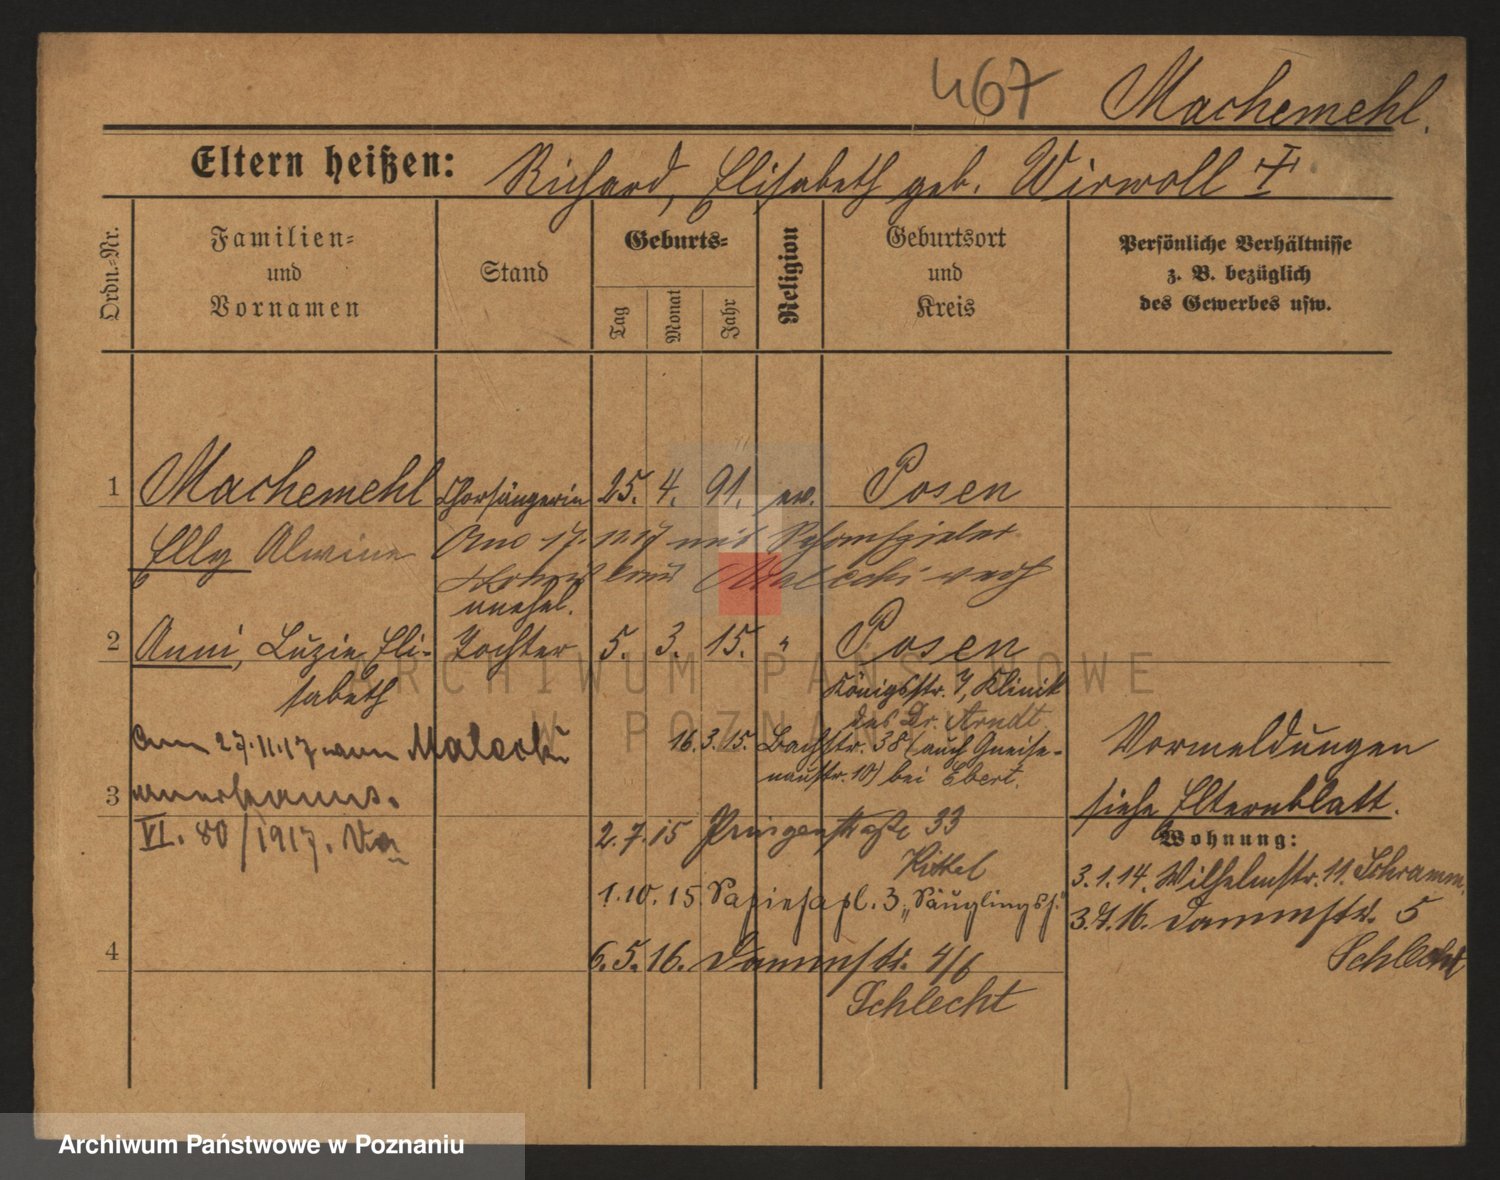 467 Machemehl.
Eltern heißen: Richard, Elisabeth geb. Wirwoll
Ordn.-Nr.
Familien-
und
Vornamen
Stand
Geburts-
Tag
Monat
Jahr
Religion
Geburtsort
und
Kreis
Persönliche Verhältnisse
z. B. bezüglich
des Gewerbes usw.
1 Machemehl Chorsängerin 25. 4. 91. ev. Posen
Elly Alwine Am 17. mit Schauspieler
Malecki verh
unehel.
2 Anni, Luzie Eli- Tochter 5. 3. 15. " Posen
sabeth
Königsstr. 7, Klinik
des Dr. Arndt
Am 27.11.17 von Malecki
16.3.15. Bachstr. 38 (auch Gneise-
naustr. 10) bei Ebert.
Vormeldungen
siehe Elternblatt.
3 anerkannt.
VI. 80/1917.
2.7.15 Prinzenstraße 33
Kittel
Wohnung:
3.1.14. Wilhelmstr. 11. Schramm
1.10.15 Sapiehapl. 3 „Säuglingsh."
3.7.16. Dammstr. 5
Schlecht
4
6.5.16. Dammstr. 4/6
Schlecht
ARCHIWUM PAŃSTWOWE
W POZNANIU
Archiwum Państwowe w Poznaniu